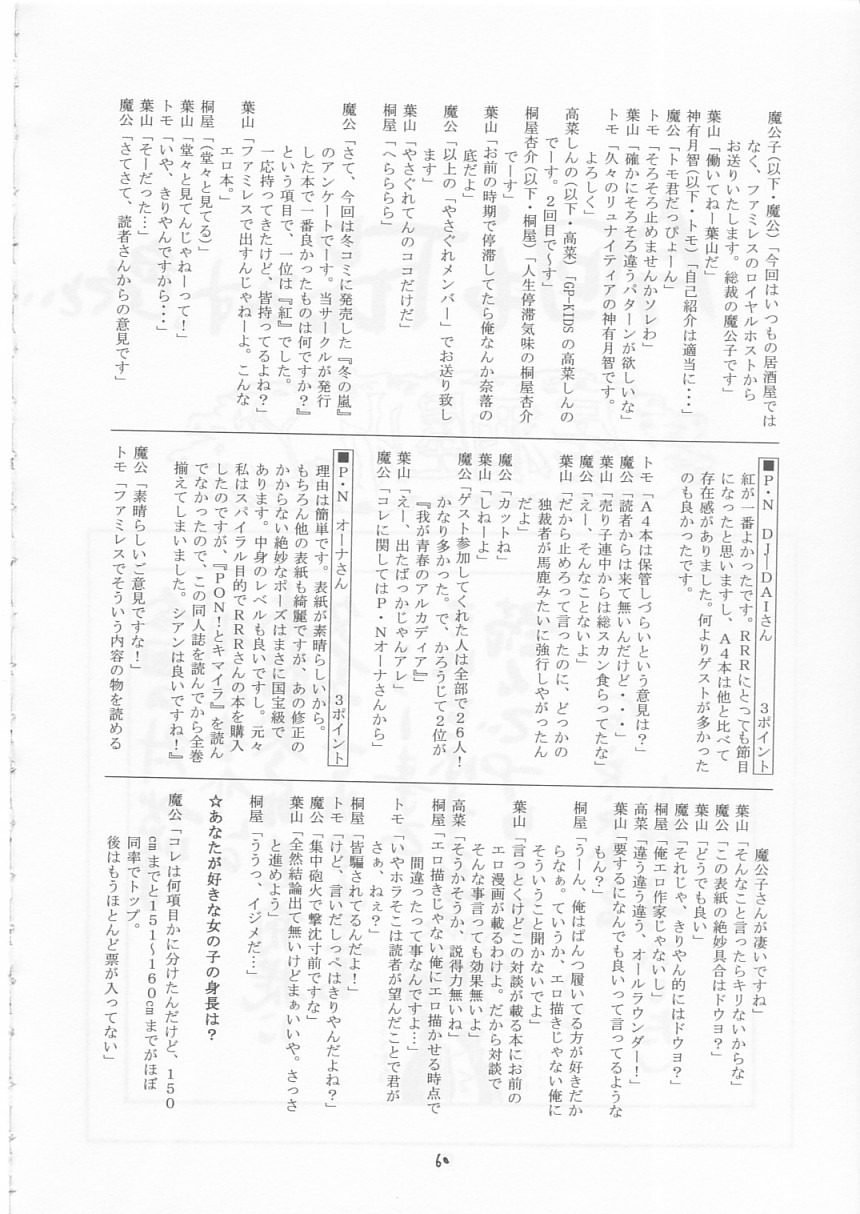 魔公子(以下・魔公)「今回はいつもの居酒屋では
なく、ファミレスのロイヤルホストから
お送りいたします。総裁の魔公子です」
葉山「働いてねー葉山だ」
神有月智(以下・トモ)「自己紹介は適当に・・・」
魔公「トモ君だっぴょーん」
トモ「そろそろ止めませんかソレわ」
葉山「確かにそろそろ違うパターンが欲しいな」
トモ「久々のリュナイティアの神有月智です。
よろしく」
高菜しんの(以下・高菜)「GP-KIDSの高菜しんの
でーす。2回目で〜す」
桐屋杏介(以下・桐屋)「人生停滞気味の桐屋杏介
でーす」
葉山「お前の時期で停滞してたら俺なんか奈落の
底だよ」
魔公「以上の「やさぐれメンバー」でお送り致し
ます」
葉山「やさぐれてんのココだけだ」
桐屋「へらららら」
魔公「さて、今回は冬コミに発売した『冬の嵐』
のアンケートでーす。当サークルが発行
した本で一番良かったものは何ですか?』
という項目で、一位は『紅』でした。
一応持ってきたけど、皆持ってるよね?」
葉山「ファミレスで出すんじゃねーよ。こんな
エロ本。」
桐屋「(堂々と見てる)」
葉山「堂々と見てんじゃねーって!」
トモ「いや、きりやんですから・・・」
葉山「そーだった…」
魔公「さてさて、読者さんからの意見です」
■P・N DJ―DAIさん 3ポイント
紅が一番よかったです。RRRにとっても節目
になったと思いますし、A4本は他と比べて
存在感がありました。何よりゲストが多かった
のも良かったです。
トモ「A4本は保管しづらいという意見は?」
魔公「読者からは来て無いんだけど・・・」
葉山「売り子連中からは総スカン食らってたな」
魔公「えー、そんなことないよ」
葉山「だから止めろって言ったのに、どっかの
独裁者が馬鹿みたいに強行しやがったん
だよ」
魔公「カットね」
葉山「しねーよ」
魔公「ゲスト参加してくれた人は全部で26人!
かなり多かった。で、かろうじて2位が
『我が青春のアルカディア』」
葉山「えー、出たばっかじゃんアレ」
魔公「コレに関してはP・Nオーナさんから」
■P・N オーナさん 3ポイント
理由は簡単です。表紙が素晴らしいから。
もちろん他の表紙も綺麗ですが、あの修正の
かからない絶妙なポーズはまさに国宝級で
あります。中身のレベルも良いですし。元々
私はスパイラル目的でRRRさんの本を購入
したのですが、『PON!とキマイラ』を読ん
でなかったので、この同人誌を読んでから全巻
揃えてしまいました。シアンは良いですね!』
魔公「素晴らしいご意見ですな!」
トモ「ファミレスでそういう内容の物を読める
魔公子さんが凄いですね」
葉山「そんなこと言ったらキリないからな」
魔公「この表紙の絶妙具合はドウヨ?」
葉山「どうでも良い」
魔公「それじゃ、きりやん的にはドウヨ?」
桐屋「俺エロ作家じゃないし」
高菜「違う違う違う、オールラウンダー!」
葉山「要するになんでも良いって言ってるような
もん?」
桐屋「うーん、俺はぱんつ履いてる方が好きだか
らなぁ。ていうか、エロ描きじゃない俺に
そういうこと聞かないでよ」
葉山「言っとくけどこの対談が載る本にお前の
エロ漫画が載るわけよ。だから対談で
そんな事言っても効果無いよ」
高菜「そうかそうか、説得力無いね」
桐屋「エロ描きじゃない俺にエロ描かせる時点で
間違ったって事なんですよ…」
トモ「いやホラそこは読者が望んだことで君が
さぁ、ねぇ?」
桐屋「皆騙されてるんだよ!」
トモ「けど、言いだしっぺはきりやんだよね?」
魔公「集中砲火で撃沈寸前ですな」
葉山「全然結論出て無いけどまぁいいや。さっさ
と進めよう」
桐屋「ううっ、イジメだ…」
☆あなたが好きな女の子の身長は?
魔公「コレは何項目かに分けたんだけど、150
cmまでと151〜160cmまでがほぼ
同率でトップ。
後はもうほとんど票が入ってない」
60